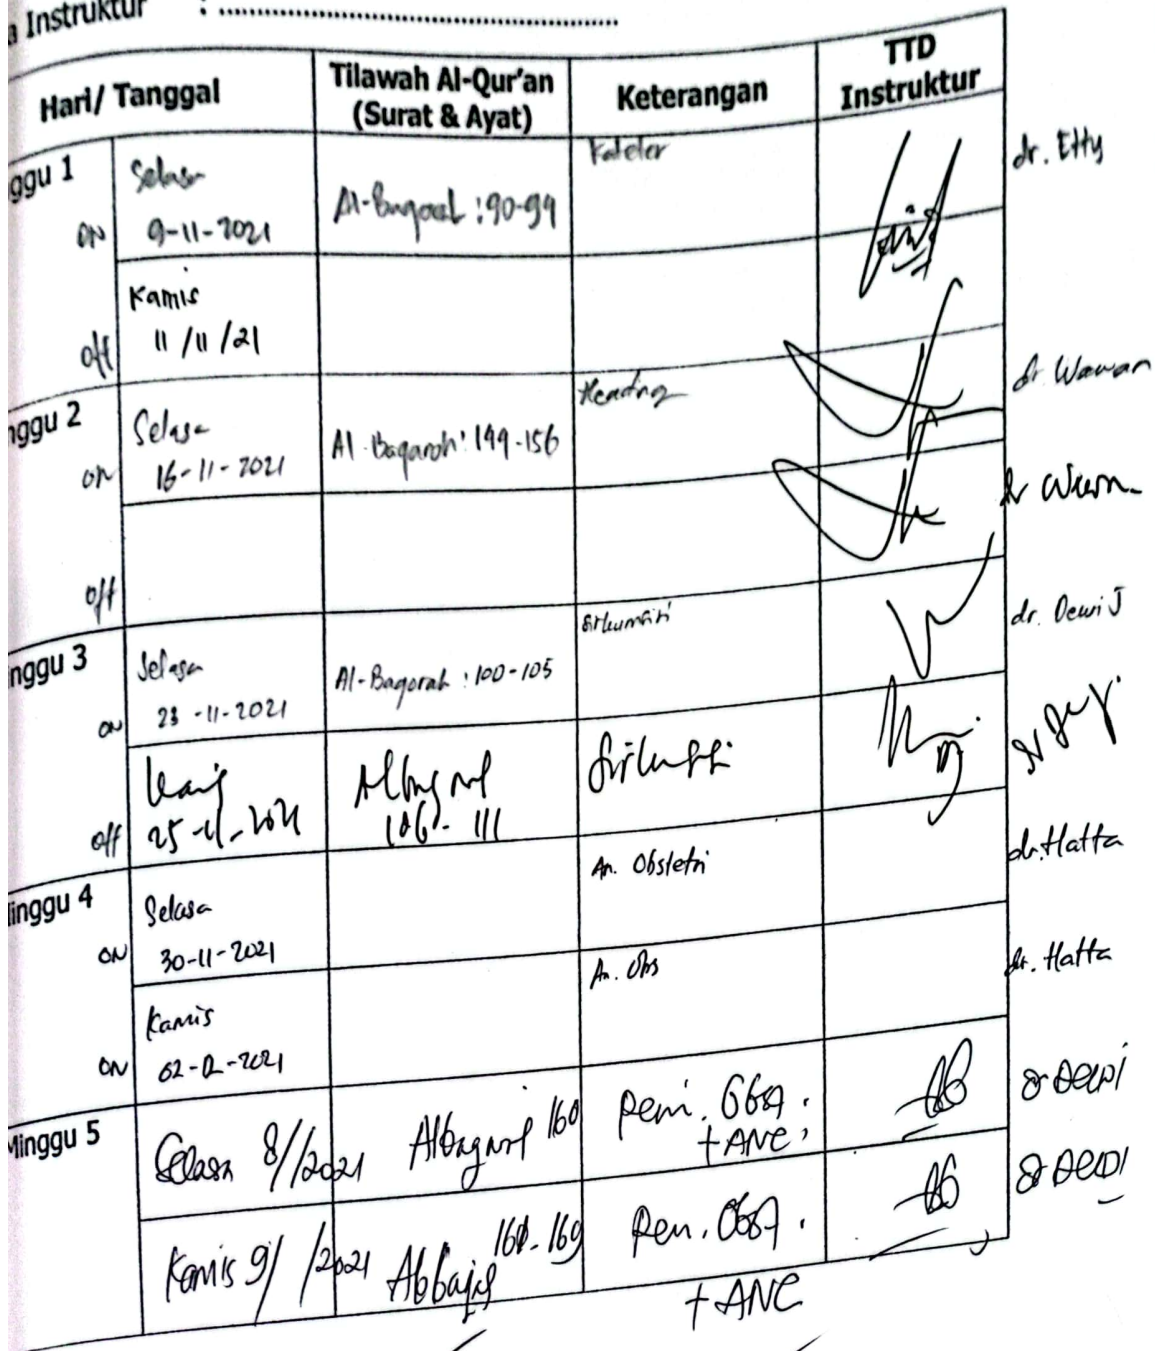 Instruktur : ........................................
Hari/ Tanggal
Tilawah Al-Qur'an
(Surat & Ayat)
Keterangan
TTD
Instruktur
ggu 1
ON
Selasa
9-11-2021
Al-Baqarah : 90-99
Kateter
dr. Etty
off
Kamis
11/11/21
nggu 2
on
Selasa
16-11-2021
Al-Baqaroh : 149-156
Heading
dr Wawan
off
nggu 3
on
Selasa
23-11-2021
Al-Baqorah : 100-105
Sirkumsisi
dr. Dewi J
off
25-11-2021
106-111
inggu 4
ON
Selasa
30-11-2021
An. Obstetri
dr. Hatta
ON
Kamis
02-12-2021
An. Obs
dr. Hatta
Minggu 5
Selasa 8/ /2021
160
Pem.
+ ANC
dr Dewi
Kamis 9/ /2021
Pem.
+ ANC
dr Dewi